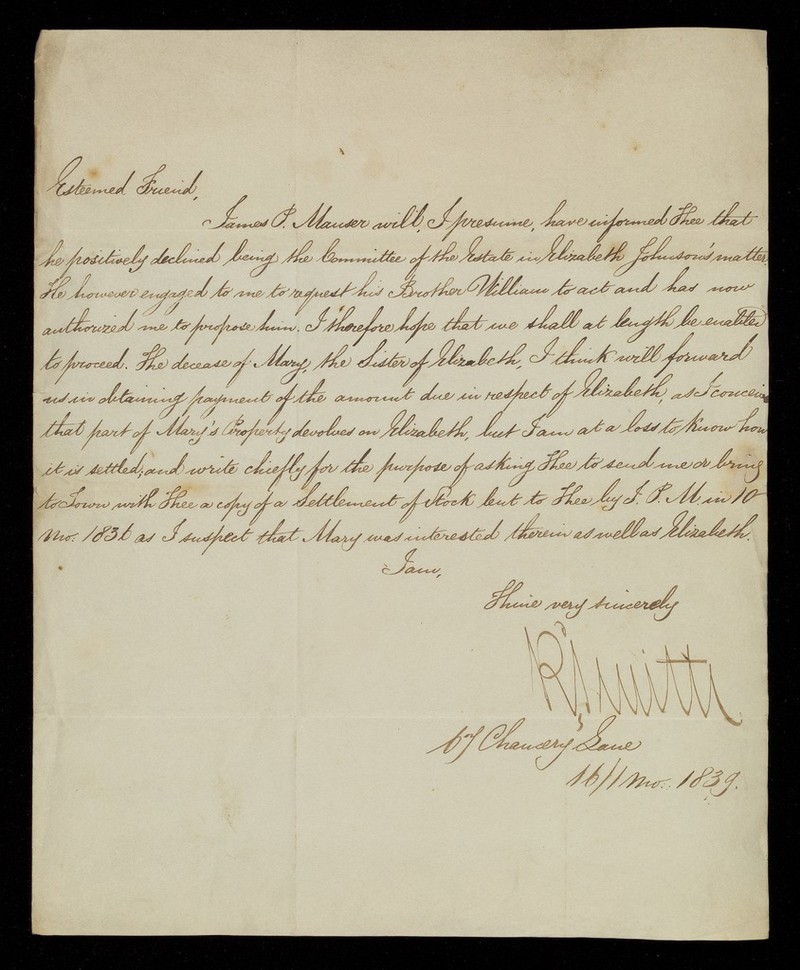 Esteemed Friend,
James P. Manser will, I presume, have informed Thee that
he positively declined being the Committee of the Estate in Elizabeth Johnson's matter.
He however engaged to me to request his Brother William to act and has now
authorized me to propose him. I therefore hope that we shall at length be enabled
to proceed. The decease of Mary, the Sister of Elizabeth, I think will forward
us in obtaining payment of the amount due in respect of Elizabeth, as I conceive
that part of Mary's Property devolves on Elizabeth, but I am at a loss to know how
it is settled; and write chiefly for the purpose of asking Thee to send me or bring
to Town with Thee a copy of a Settlement of Stock lent to Thee by J. P. M in 10
mo: as I suspect that Mary was interested therein as well as Elizabeth.
I am,
Thine very sincerely
Smith
Chancery Lane
16/1 mo: 1839.